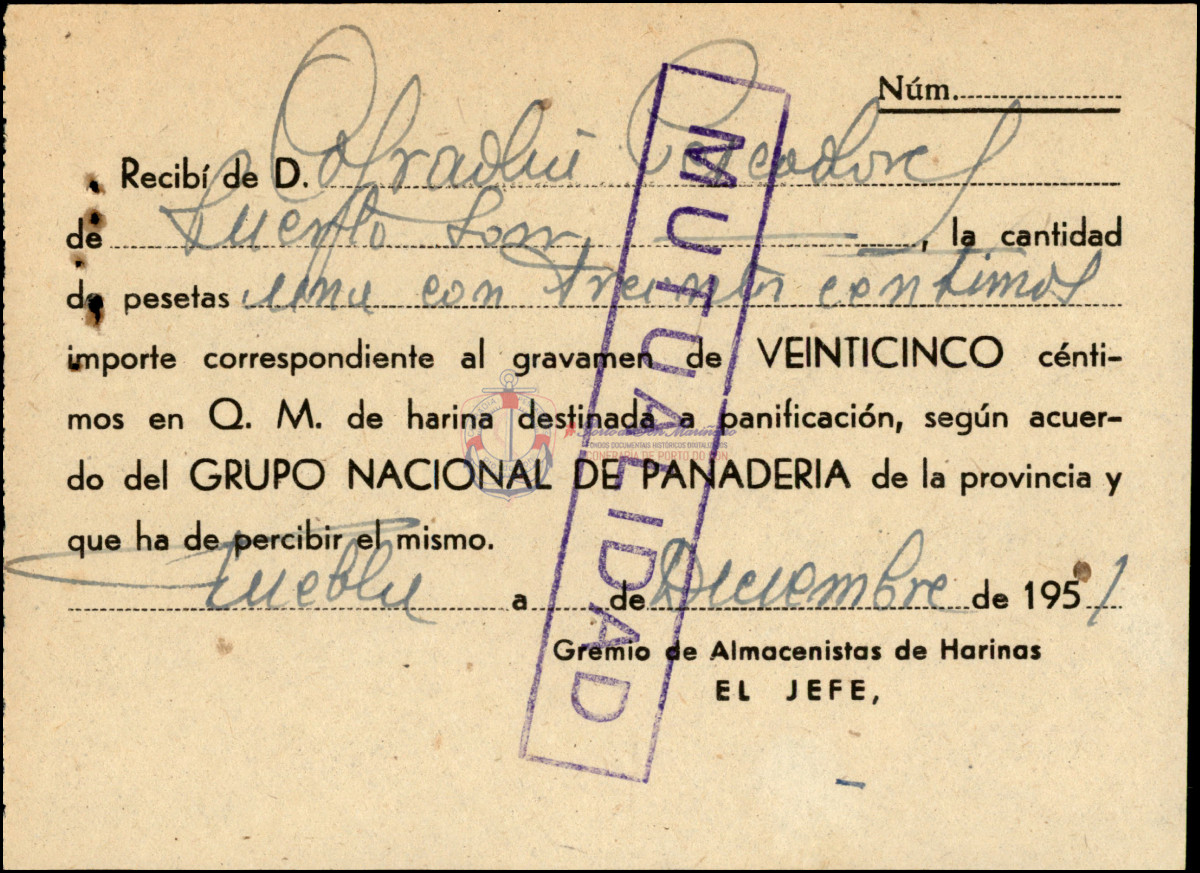 Núm.
Recibí de D. Cofradia Pescadores
de Puerto Son, , la cantidad
de pesetas una con treinta centimos
importe correspondiente al gravamen de VEINTICINCO cénti-
mos en Q. M. de harina destinada a panificación, según acuer-
do del GRUPO NACIONAL DE PANADERIA de la provincia y
que ha de percibir el mismo.
Puebla a de Diciembre de 1951
Gremio de Almacenistas de Harinas
EL JEFE,
MUTUALIDAD
Porto do Son Mariñeiro
FONDOS DOCUMENTAIS HISTÓRICOS DIXITALIZADOS
CONFRARÍA DE PORTO DO SON